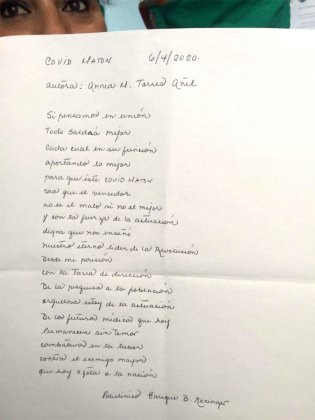 COVID MATON 6/4/2020
autora: Annia M. Torres Añil
Si pensamos en unión
Todo saldrá mejor
Cada cual en su función
aportando lo mejor
para que este COVID MATON
sea que el vencedor
no es el malo si no el mejor
y con la fuerza de la actuación
digna que nos enseñó
nuestro eterno líder de la Revolución
Desde mi posición
con la tarea de dirección
De la pesquisa a la población
orgullosa estoy de la actuación
De los futuros médicos que hoy
Permanecen sin temor
combativos en la labor
contra el enemigo mayor
que hoy azota a la nación
Enrique B.